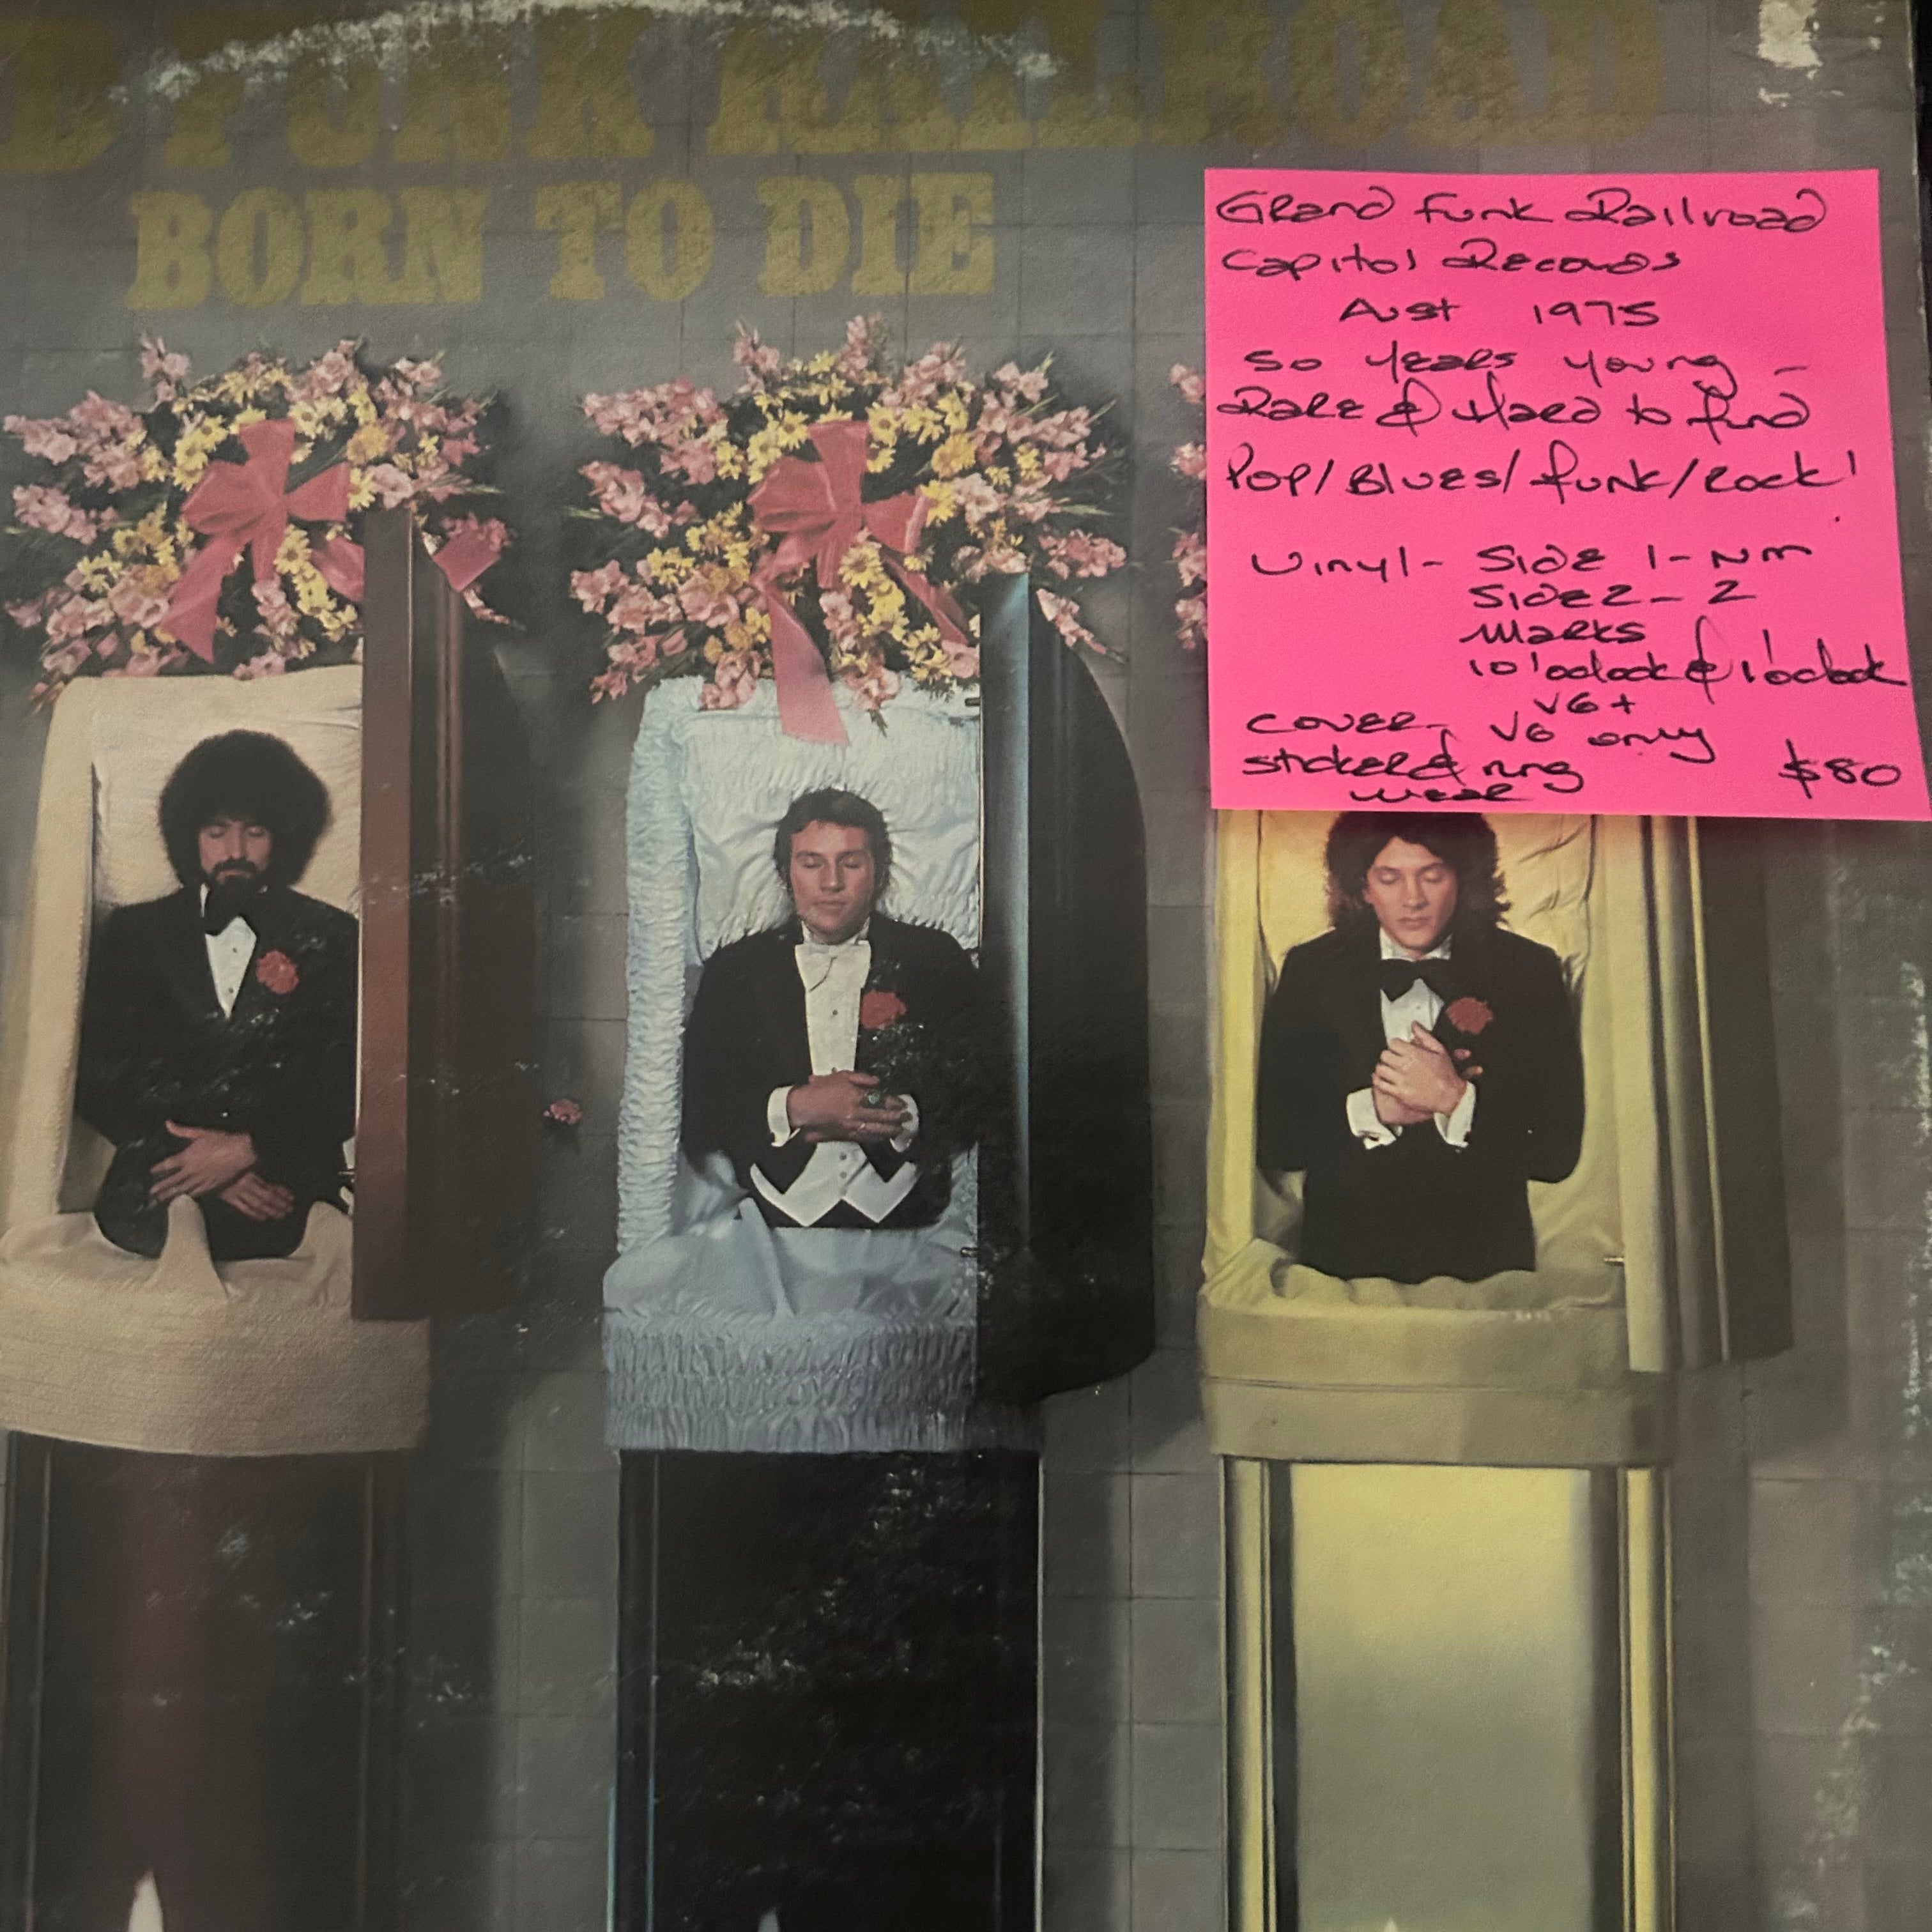 D FUNK RAILROAD
BORN TO DIE
Grand Funk Railroad
Capitol Records
Aust 1975
50 years young -
Rare & Hard to find
Pop/Blues/funk/Rock!
Vinyl - Side 1 - NM
Side 2 - 2
marks
10'oclock & 1'oclock
VG+
Cover - VG only
sticker & ring
wear
$80